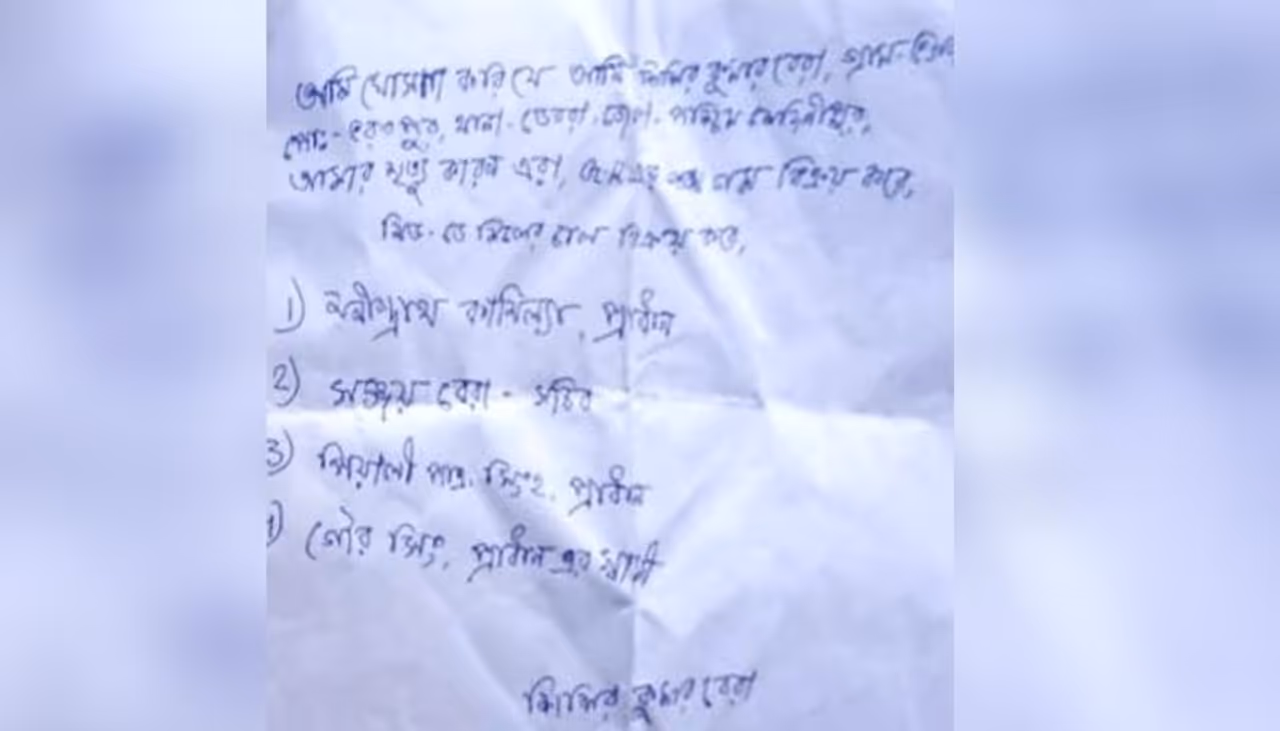 আমি ঘোসণা করি যে আমি শিশির কুমার বেরা, গ্রাম-
পোঃ- হরেপুর, থানা- ডেবরা, জেলা- পশ্চিম মেদিনীপুর,
আমার মৃত্যু কারন এরা, গম বিক্রয় করে,
মিড-ডে মিলের চাল বিক্রয় করে,
1) মনীন্দ্রনাথ কামিল্যা, প্রাধান
2) সঞ্জয় বেরা - সচিব
3) শিয়ালী পাত্র, সিংহ, প্রাধান
4) গৌর সিং, প্রাধান এর স্বামী
শিশির কুমার বেরা